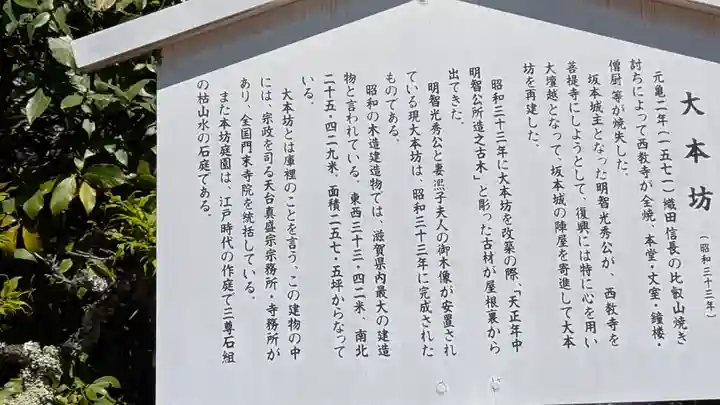 大本坊
(昭和三十三年)
元亀二年(一五七一)織田信長の比叡山焼き
討ちによって西教寺が全焼、本堂・文室・鐘楼・
僧厨等が焼失した。
坂本城主となった明智光秀公が、西教寺を
菩提寺にしようとして、復興には特に心を用い
大壇越となって、坂本城の陣屋を寄進して大本
坊を再建した。
昭和三十三年に大本坊を改築の際、「天正年中
明智公所造之古木」と彫った古材が屋根裏から
出てきた。
明智光秀公と妻凞子夫人の御木像が安置され
ている現大本坊は、昭和三十三年に完成された
ものである。
昭和の木造建造物では、滋賀県内最大の建造
物と言われている。東西三十三・四二米、南北
二十五・四二九米、面積二五七・五坪からなって
いる。
大本坊とは庫裡のことを言う、この建物の中
には、宗政を司る天台真盛宗宗務所・寺務所が
あり、全国門末寺院を統括している。
また本坊庭園は、江戸時代の作庭で三尊石組
の枯山水の石庭である。